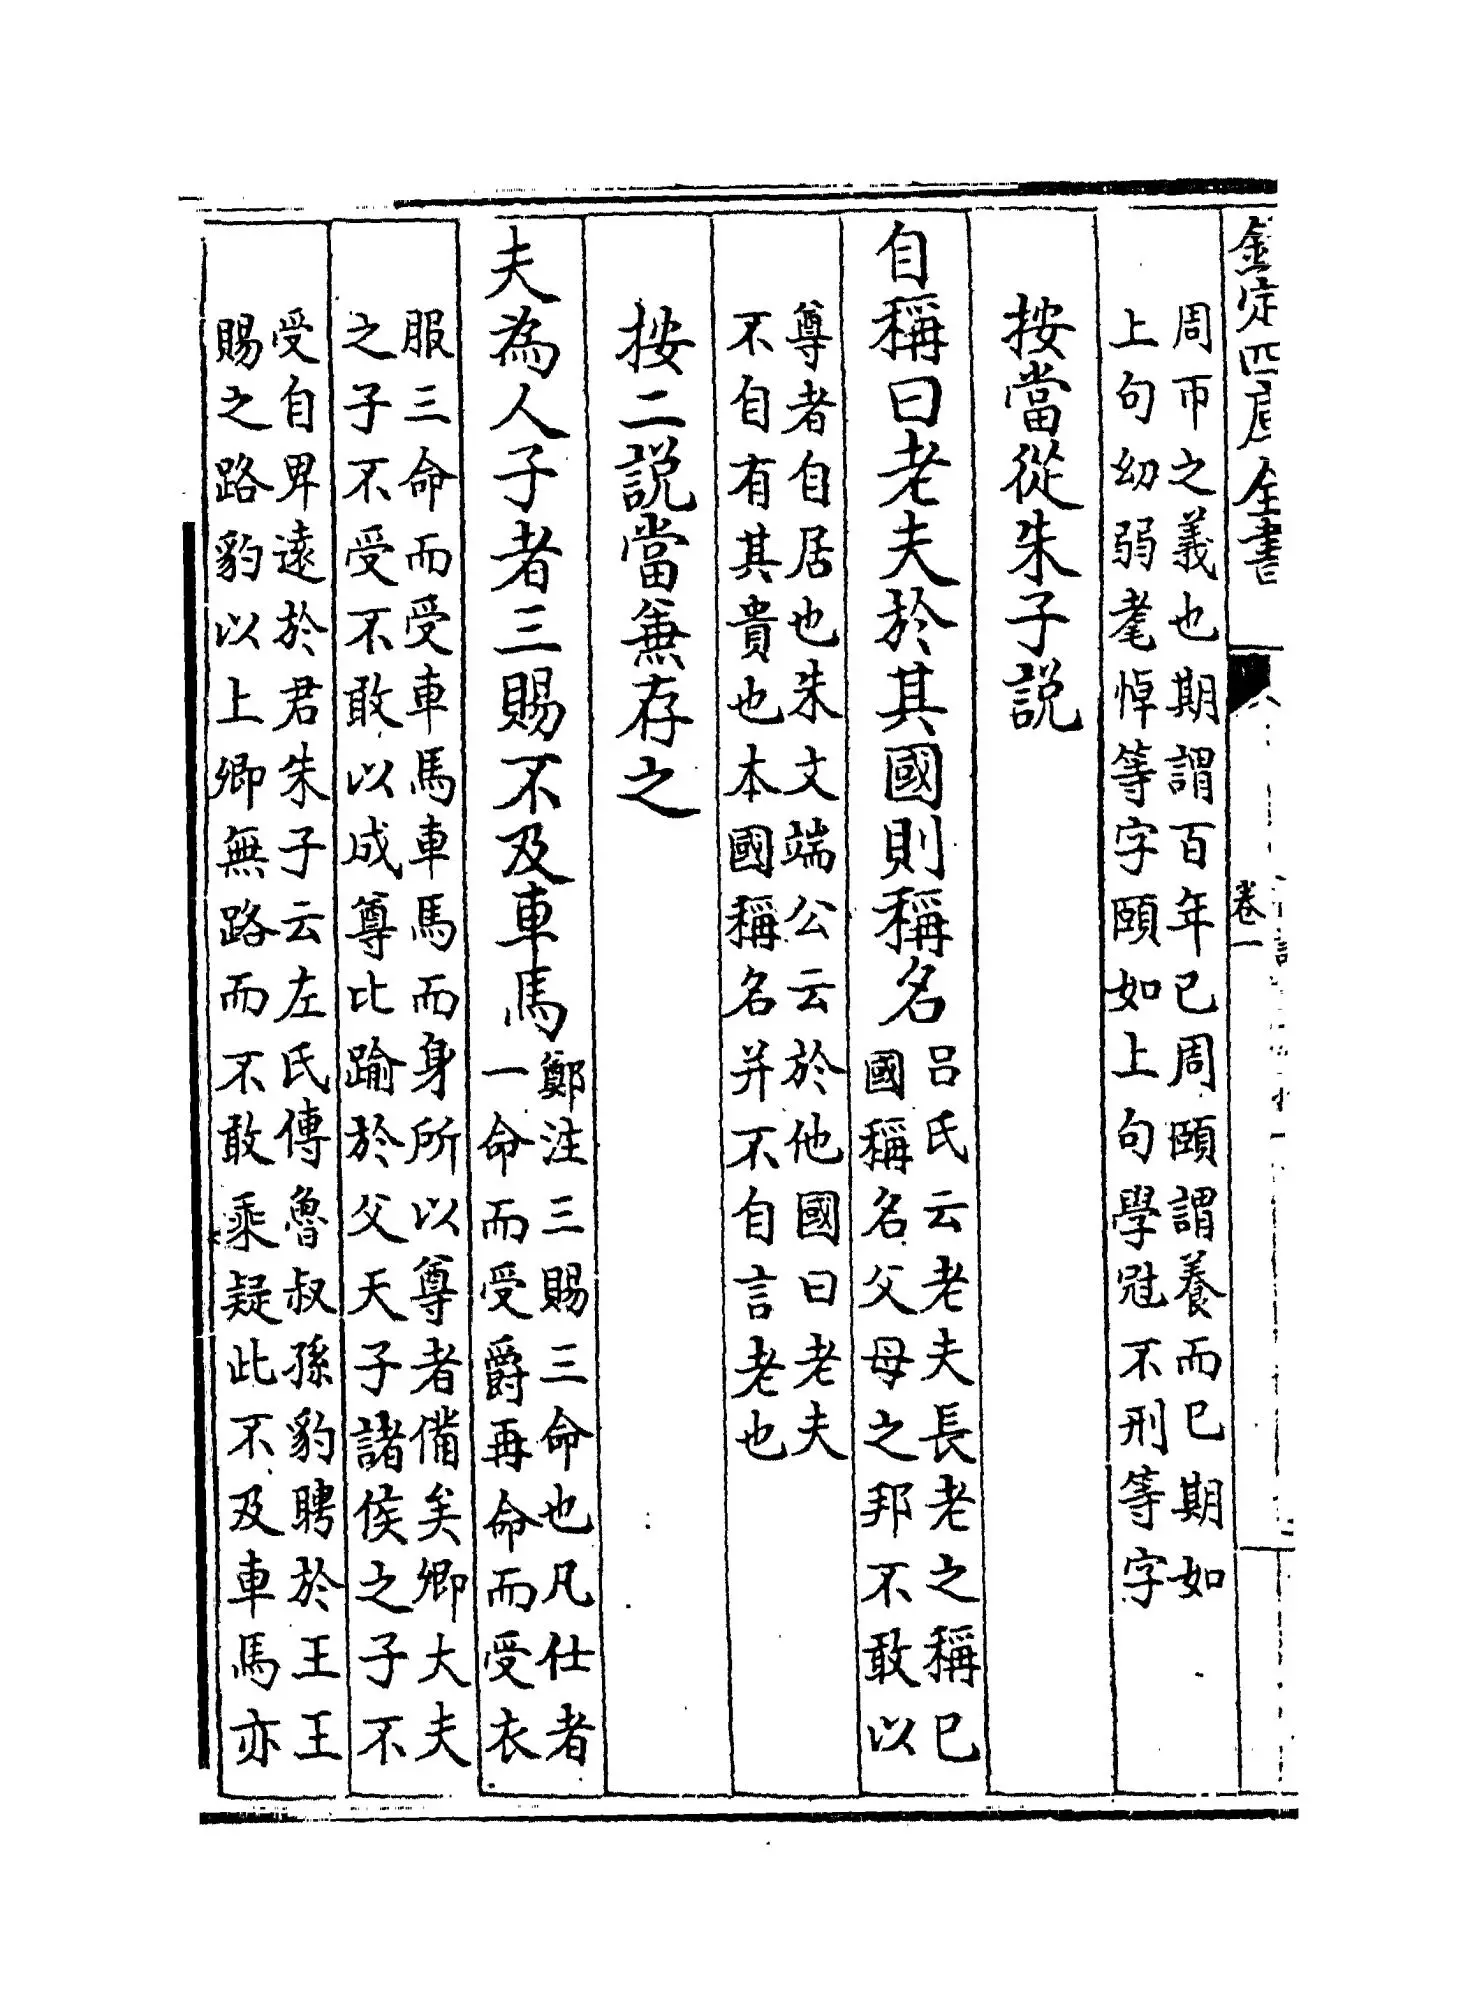 欽定四庫全書
卷一
周帀之義也期謂百年已周頤謂養而已期如
上句幼弱耄悼等字頤如上句學冠不刑等字
按當從朱子説
自稱曰老夫於其國則稱名
吕氏云老夫長老之稱已
國稱名父母之邦不敢以
尊者自居也朱文端公云於他國曰老夫
不自有其貴也本國稱名并不自言老也
按二説當兼存之
夫為人子者三賜不及車馬
鄭注三賜三命也凡仕者
一命而受爵再命而受衣
服三命而受車馬車馬而身所以尊者備矣卿大夫
之子不受不敢以成尊比踰於父天子諸侯之子不
受自卑遠於君朱子云左氏傳魯叔孫豹聘於王王
賜之路豹以上卿無路而不敢乘疑此不及車馬亦